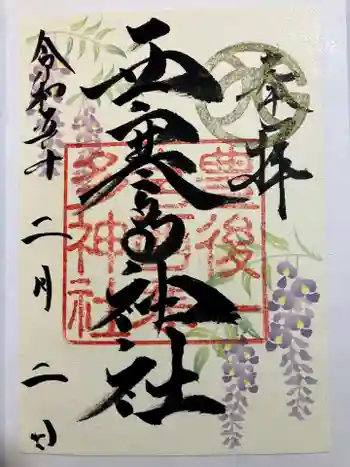 奉拝
西寒多神社
令和五年二月二日
豊後一
之宮西寒
多神社